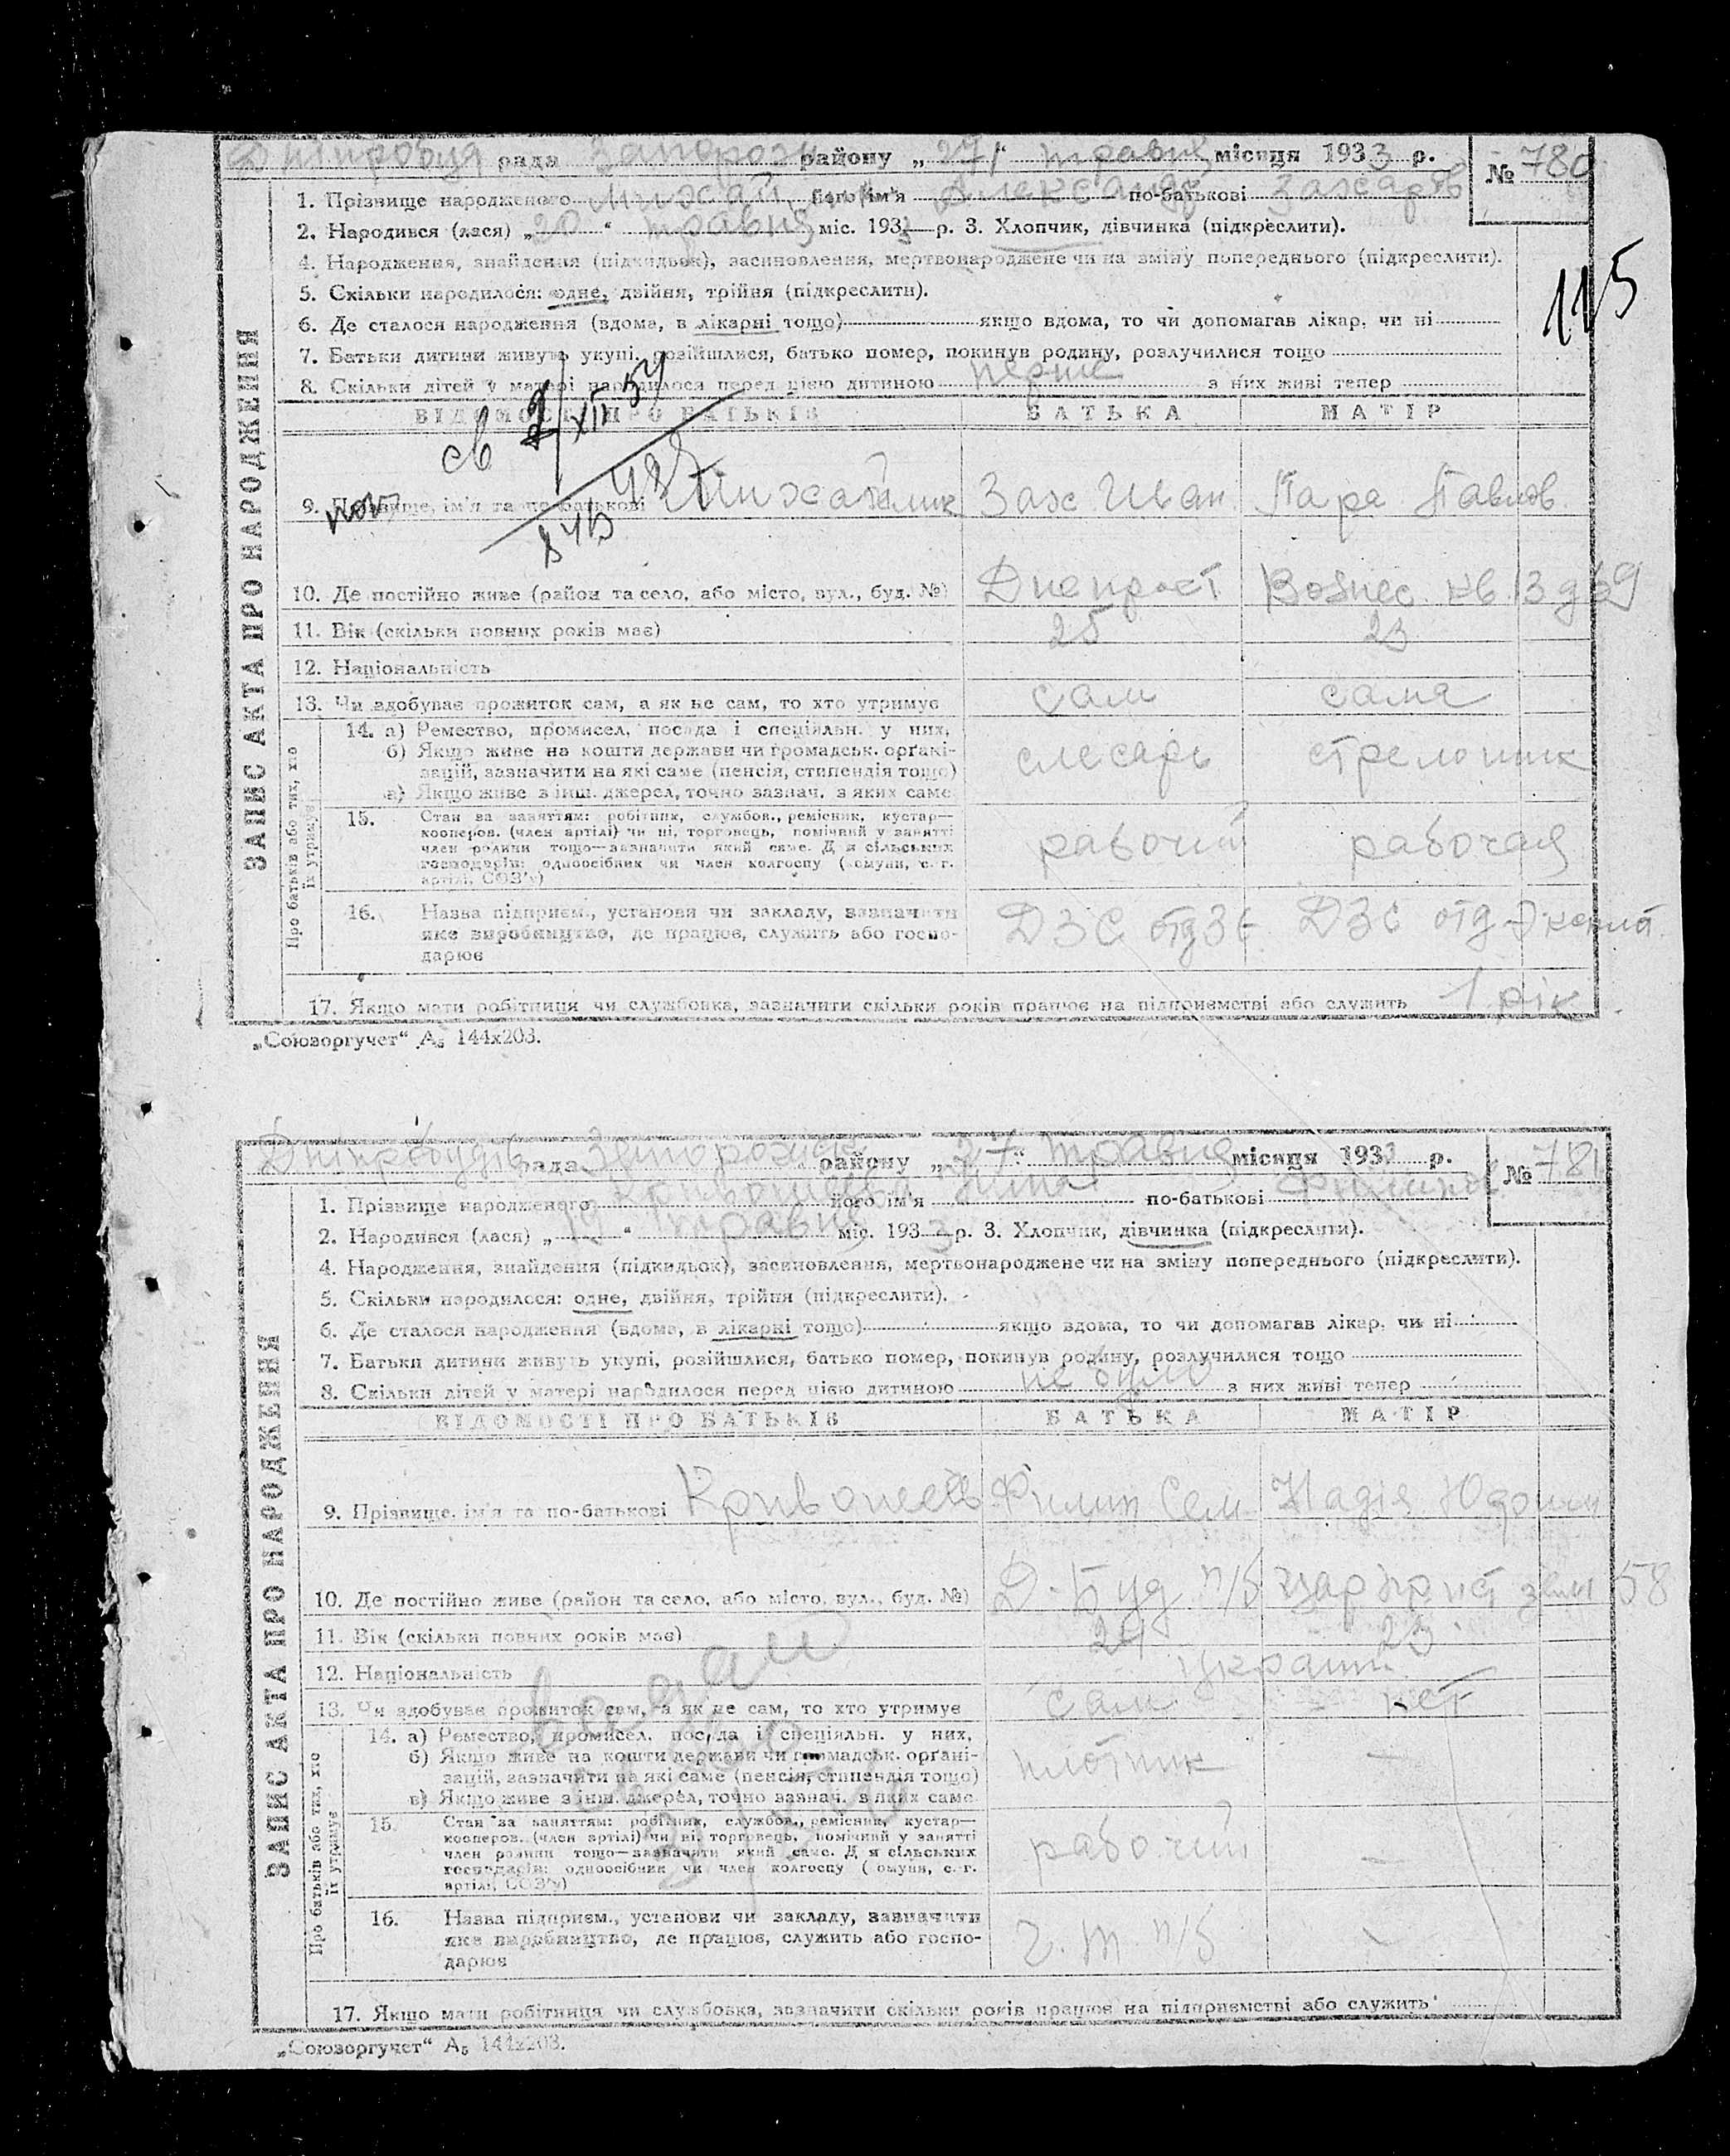 рада Запорозьк району „27“ травня місяця 1933 р. № 780
1. Прізвище народженого Михай його ім'я Александр по-батькові Захаров
2. Народився (лася) „20“ травня міс. 1933 р. 3. Хлопчик, дівчинка (підкреслити).
4. Народження, знайдення (підкидьок), засиновлення, мертвонароджене чи на зміну попереднього (підкреслити).
5. Скільки народилося: одне, двійня, трійня (підкреслити).
115
6. Де сталося народження (вдома, в лікарні тощо) якщо вдома, то чи допомагав лікар, чи ні
7. Батьки дитини живуть укупі, розійшлися, батько помер, покинув родину, розлучилися тощо
8. Скільки дітей у матері народилося перед цією дитиною перше з них живі тепер
ВІДОМОСТІ ПРО БАТЬКІВ БАТЬКА МАТІР
св XII 54
9. Прізвище, ім'я та по-батькові Зах Иван Павлов
10. Де постійно живе (район та село, або місто, вул., буд. №) Днепрост Вознес. кв. 13 д 59
11. Вік (скільки повних років має) 25 23
12. Національність
13. Чи здобуває прожиток сам, а як не сам, то хто утримує сам сама
14. а) Ремество, промисел, посада і спеціяльн. у них,
б) Якщо живе на кошти держави чи громадськ. орґані-
зацій, зазначити на які саме (пенсія, стипендія тощо) слесарь
в) Якщо живе з інш. джерел, точно зазнач. з яких саме
15. Стан за заняттям: робітник, службов., ремісник, кустар—
кооперов. (член артілі) чи ні, торговець, помічний у занятті
член родини тощо—зазначити який саме. Для сільських рабочий рабочая
господарів: одноосібник чи член колгоспу (комуни, с.-г.
артілі, СОЗ'у)
16. Назва підприєм., установи чи закладу, зазначити
яке виробництво, де працює, служить або госпо- ДЗС отд ДЗС отд
дарює
17. Якщо мати робітниця чи службовка, зазначити скільки років працює на підприємстві або служить 1 рік
ЗАПИС АКТА ПРО НАРОДЖЕННЯ
Про батьків або тих, хто їх утримує
„Союзоргучет“ А₅ 144х203.
рада Запорозьк району „27“ травня місяця 1933 р. № 781
1. Прізвище народженого його ім'я по-батькові
2. Народився (лася) „19“ травня міс. 1933 р. 3. Хлопчик, дівчинка (підкреслити).
4. Народження, знайдення (підкидьок), засиновлення, мертвонароджене чи на зміну попереднього (підкреслити).
5. Скільки народилося: одне, двійня, трійня (підкреслити).
6. Де сталося народження (вдома, в лікарні тощо) якщо вдома, то чи допомагав лікар, чи ні
7. Батьки дитини живуть укупі, розійшлися, батько помер, покинув родину, розлучилися тощо
8. Скільки дітей у матері народилося перед цією дитиною не було з них живі тепер
ВІДОМОСТІ ПРО БАТЬКІВ БАТЬКА МАТІР
9. Прізвище, ім'я та по-батькові Филип Сем Надія
10. Де постійно живе (район та село, або місто, вул., буд. №) Д-Буд п/б 58
11. Вік (скільки повних років має) 24 23
12. Національність україн.
13. Чи здобуває прожиток сам, а як не сам, то хто утримує сам нет
14. а) Ремество, промисел, посада і спеціяльн. у них,
б) Якщо живе на кошти держави чи громадськ. орґані-
зацій, зазначити на які саме (пенсія, стипендія тощо) плотник —
в) Якщо живе з інш. джерел, точно зазнач. з яких саме
15. Стан за заняттям: робітник, службов., ремісник, кустар—
кооперов. (член артілі) чи ні, торговець, помічний у занятті
член родини тощо—зазначити який саме. Для сільських рабочий —
господарів: одноосібник чи член колгоспу (комуни, с.-г.
артілі, СОЗ'у)
16. Назва підприєм., установи чи закладу, зазначити
яке виробництво, де працює, служить або госпо- п/б —
дарює
17. Якщо мати робітниця чи службовка, зазначити скільки років працює на підприємстві або служить
ЗАПИС АКТА ПРО НАРОДЖЕННЯ
Про батьків або тих, хто їх утримує
„Союзоргучет“ А₅ 144х203.